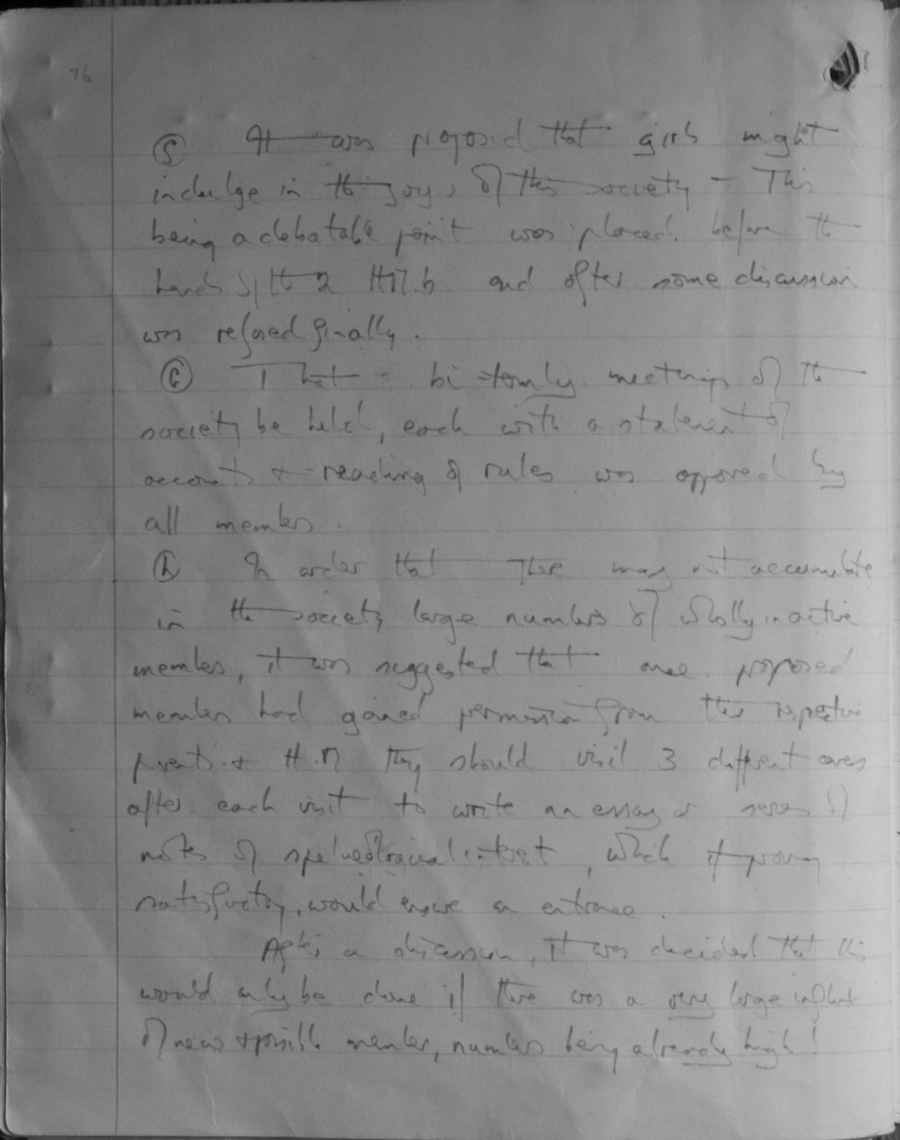 76
It was proposed that girls might
indulge in the joys of this society - This
being a debatable point was placed before the
hands of the H.M. and after some discussion
was refused finally.
That bi-termly meetings of the
society be held, each with a statement of
accounts + reading of rules was approved by
all members.
(h) In order that there may not accumulate
in the society large numbers of wholly inactive
members, it was suggested that once proposed
members had gained permission from their respective
parents + H.M they should visit 3 different caves
after each visit to write an essay or series of
notes of speleological interest, which if proving
satisfactory, would ensure an entrance.
After a discussion, it was decided that this
would only be done if there was a very large influx
of new + possible members, numbers being already high!